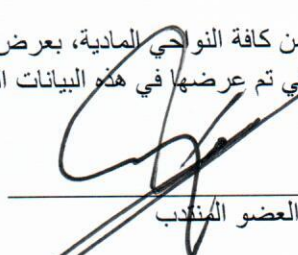 ن كافة النواحي المادية، بعرض
ي تم عرضها في هذه البيانات ا
العضو المنتدب